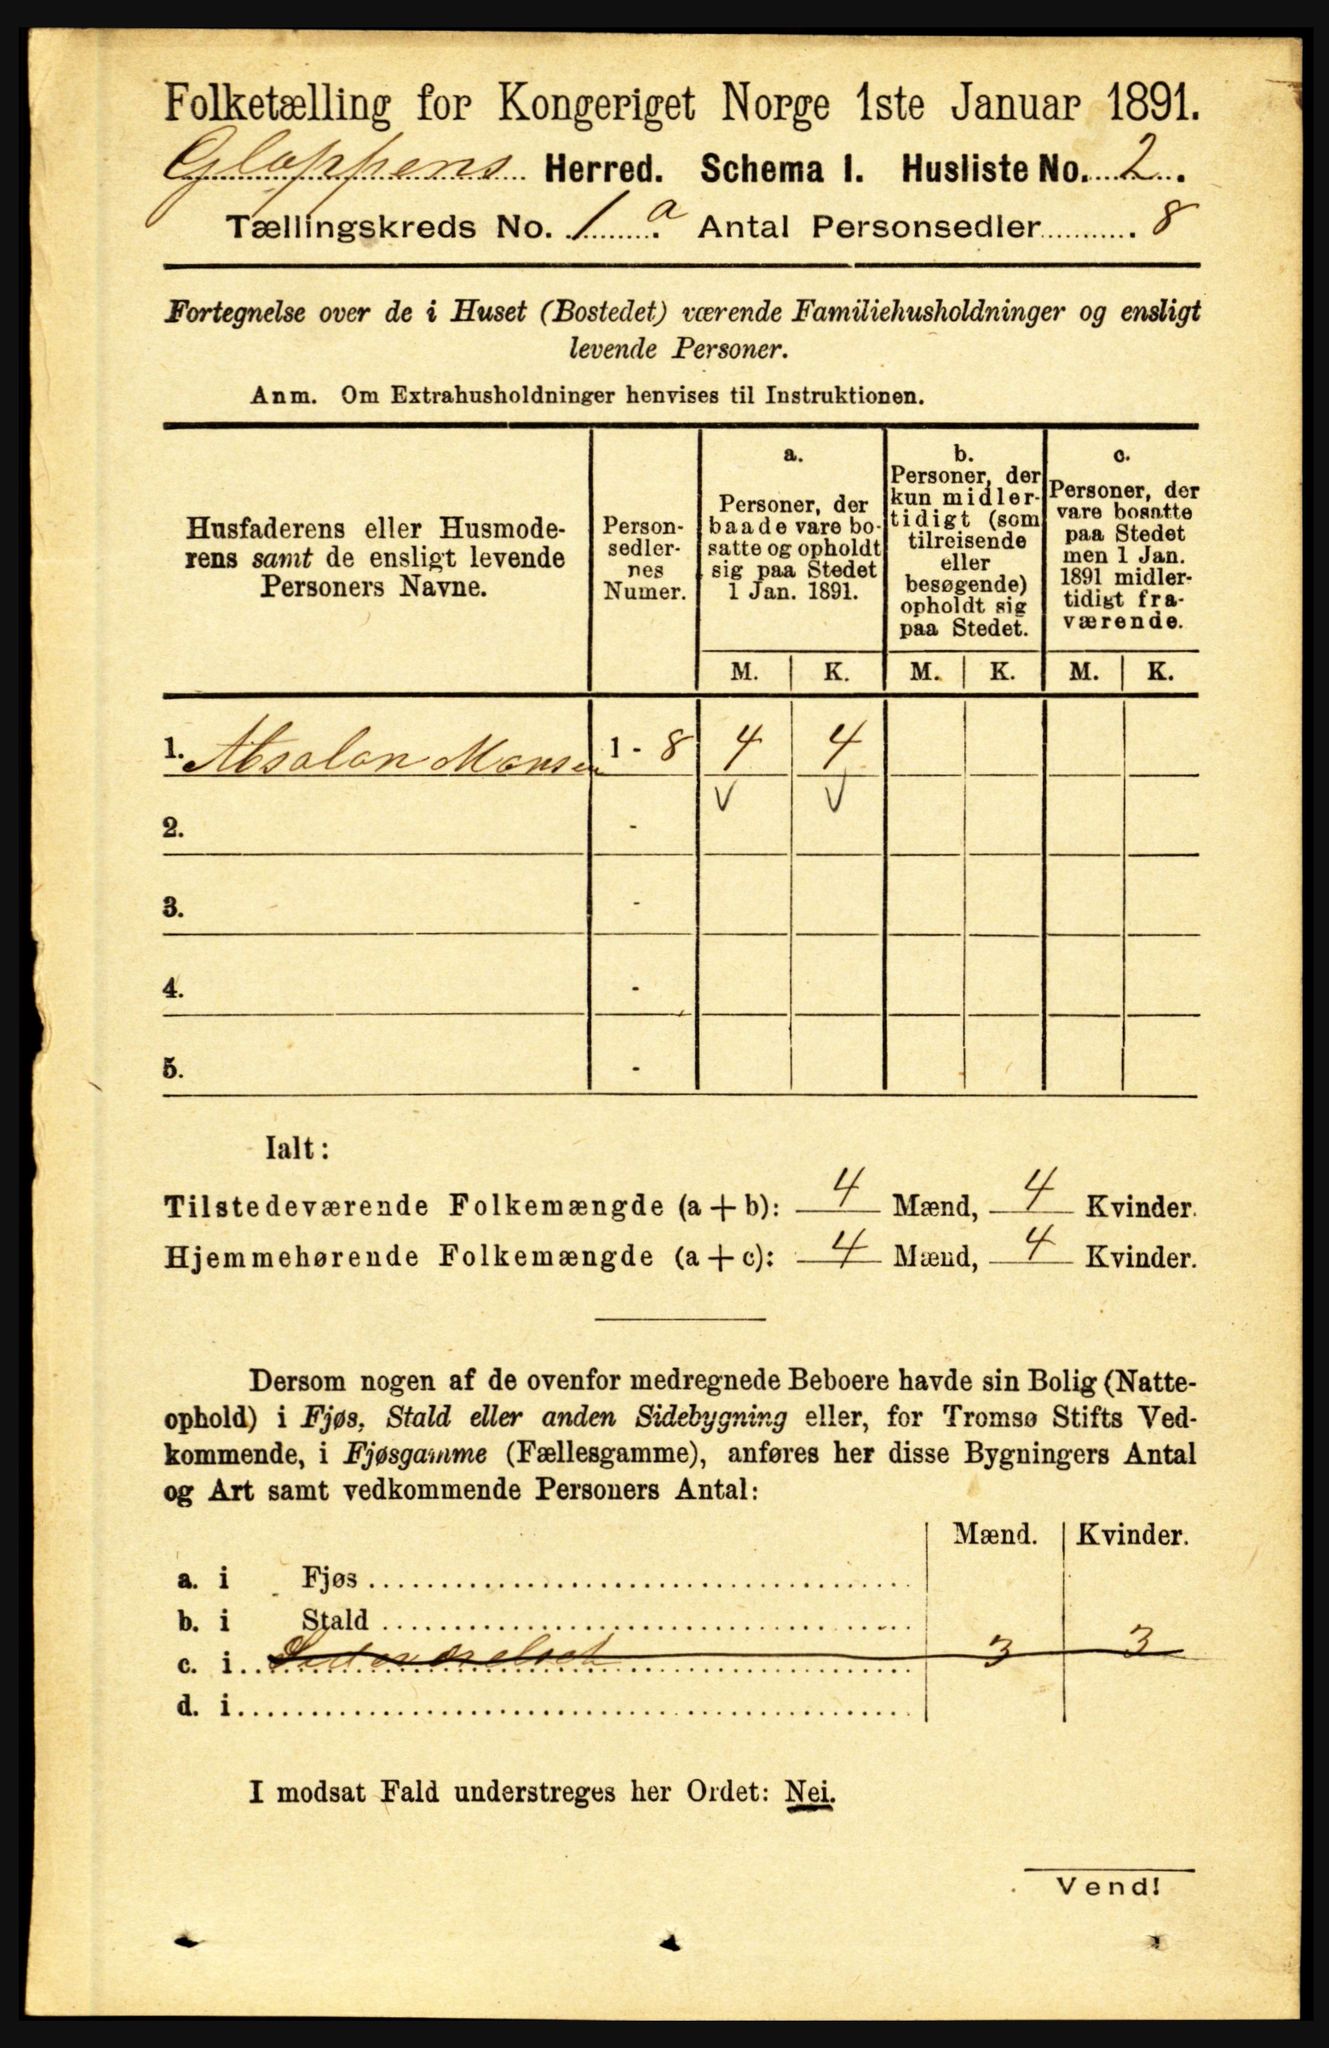 Folketælling for Kongeriget Norge 1ste Januar 1891.
Gloppens Herred. Schema I. Husliste No. 2.
Tællingskreds No. 1 a. Antal Personsedler 8
Fortegnelse over de i Huset (Bostedet) værende Familiehusholdninger og ensligt
levende Personer.
Anm. Om Extrahusholdninger henvises til Instruktionen.
Husfaderens eller Husmode-
rens samt de ensligt levende
Personers Navne.
Person-
sedler-
nes
Numer.
a.
Personer, der
baade vare bo-
satte og opholdt
sig paa Stedet
1 Jan. 1891.
b.
Personer, der
kun midler-
tidigt (som
tilreisende
eller
besøgende)
opholdt sig
paa Stedet.
c.
Personer, der
vare bosatte
paa Stedet
men 1 Jan.
1891 midler-
tidigt fra-
værende.
M. K. M. K. M. K.
1. Absalon Monsen 1 - 8 4 4
2. -
3. -
4. -
5. -
Ialt:
Tilstedeværende Folkemængde (a + b): 4 Mænd, 4 Kvinder.
Hjemmehørende Folkemængde (a + c): 4 Mænd, 4 Kvinder.
Dersom nogen af de ovenfor medregnede Beboere havde sin Bolig (Natte-
ophold) i Fjøs, Stald eller anden Sidebygning eller, for Tromsø Stifts Ved-
kommende, i Fjøsgamme (Fællesgamme), anføres her disse Bygningers Antal
og Art samt vedkommende Personers Antal:
Mænd. Kvinder.
a. i Fjøs
b. i Stald
c. i 3 3
d. i
I modsat Fald understreges her Ordet: Nei.
Vend!